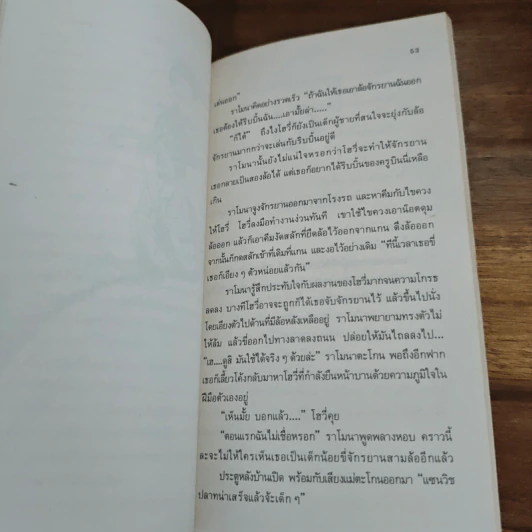 53
เล่นออก"
ราโมนาคิดอย่างรวดเร็ว "ถ้าฉันให้เธอเอาล้อจักรยานฉันออก
เธอต้องให้ริบบิ้นฉัน....เอามั้ยล่า....."
"ก็ได้" ถึงไงโฮวี่ก็ยังเป็นเด็กผู้ชายที่สนใจจะยุ่งกับล้อ
จักรยานมากกว่าจะเล่นกับริบบิ้นอยู่ดี
ราโมนานั้นยังไม่แน่ใจหรอกว่าโฮวี่จะทำให้จักรยาน
เธอกลายเป็นสองล้อได้ แต่เธอก็อยากได้ริบบิ้นของครูบินนี่เหลือ
เกิน
ราโมนาจูงจักรยานออกมาจากโรงรถ และหาคีมกับไขควง
ให้โฮวี่ โฮวี่ลงมือทำงานง่วนทันที เขาใช้ไขควงเอาน็อตดุม
ล้อออก แล้วก็เอาคีมงัดสลักที่ยึดล้อไว้ออกจากแกน ดึงล้อออก
จากนั้นก็กดสลักเข้าที่เดิมที่แกน และงอไว้อย่างเดิม "ทีนี้เวลาเธอขี่
เธอก็เอียง ๆ ตัวหน่อยแล้วกัน"
ราโมนารู้สึกประทับใจกับผลงานของโฮวี่มากจนความโกรธ
ลดลง บางทีโฮวี่อาจจะถูกก็ได้เธอจับจักรยานไว้ แล้วขึ้นไปนั่ง
โดยเอียงตัวไปด้านที่มีล้อหลังเหลืออยู่ ราโมนาพยายามทรงตัว
ไม่ให้ล้ม แล้วขี่ออกไปทางลาดลงถนน ปล่อยให้มันไถลลงไป...
"เฮ....ดูสิ มันใช้ได้จริง ๆ ด้วยล่ะ" ราโมนาตะโกน พอถึงอีกฟาก
เธอก็เลี้ยวโค้งกลับมาหาโฮวี่ที่กำลังยืนหน้าบานด้วยความภูมิใจใน
ฝีมือตัวเองอยู่
"เห็นมั้ย บอกแล้ว...." โฮวี่คุย
"ตอนแรกฉันไม่เชื่อหรอก" ราโมนาพูดพลางหอบ คราวนี้
ละจะไม่ให้ใครเห็นเธอเป็นเด็กน้อยขี่จักรยานสามล้ออีกแล้ว
ประตูหลังบ้านเปิด พร้อมกับเสียงแม่ตะโกนออกมา "แซนวิช
ปลาทูน่าเสร็จแล้วจ้ะเด็ก ๆ"